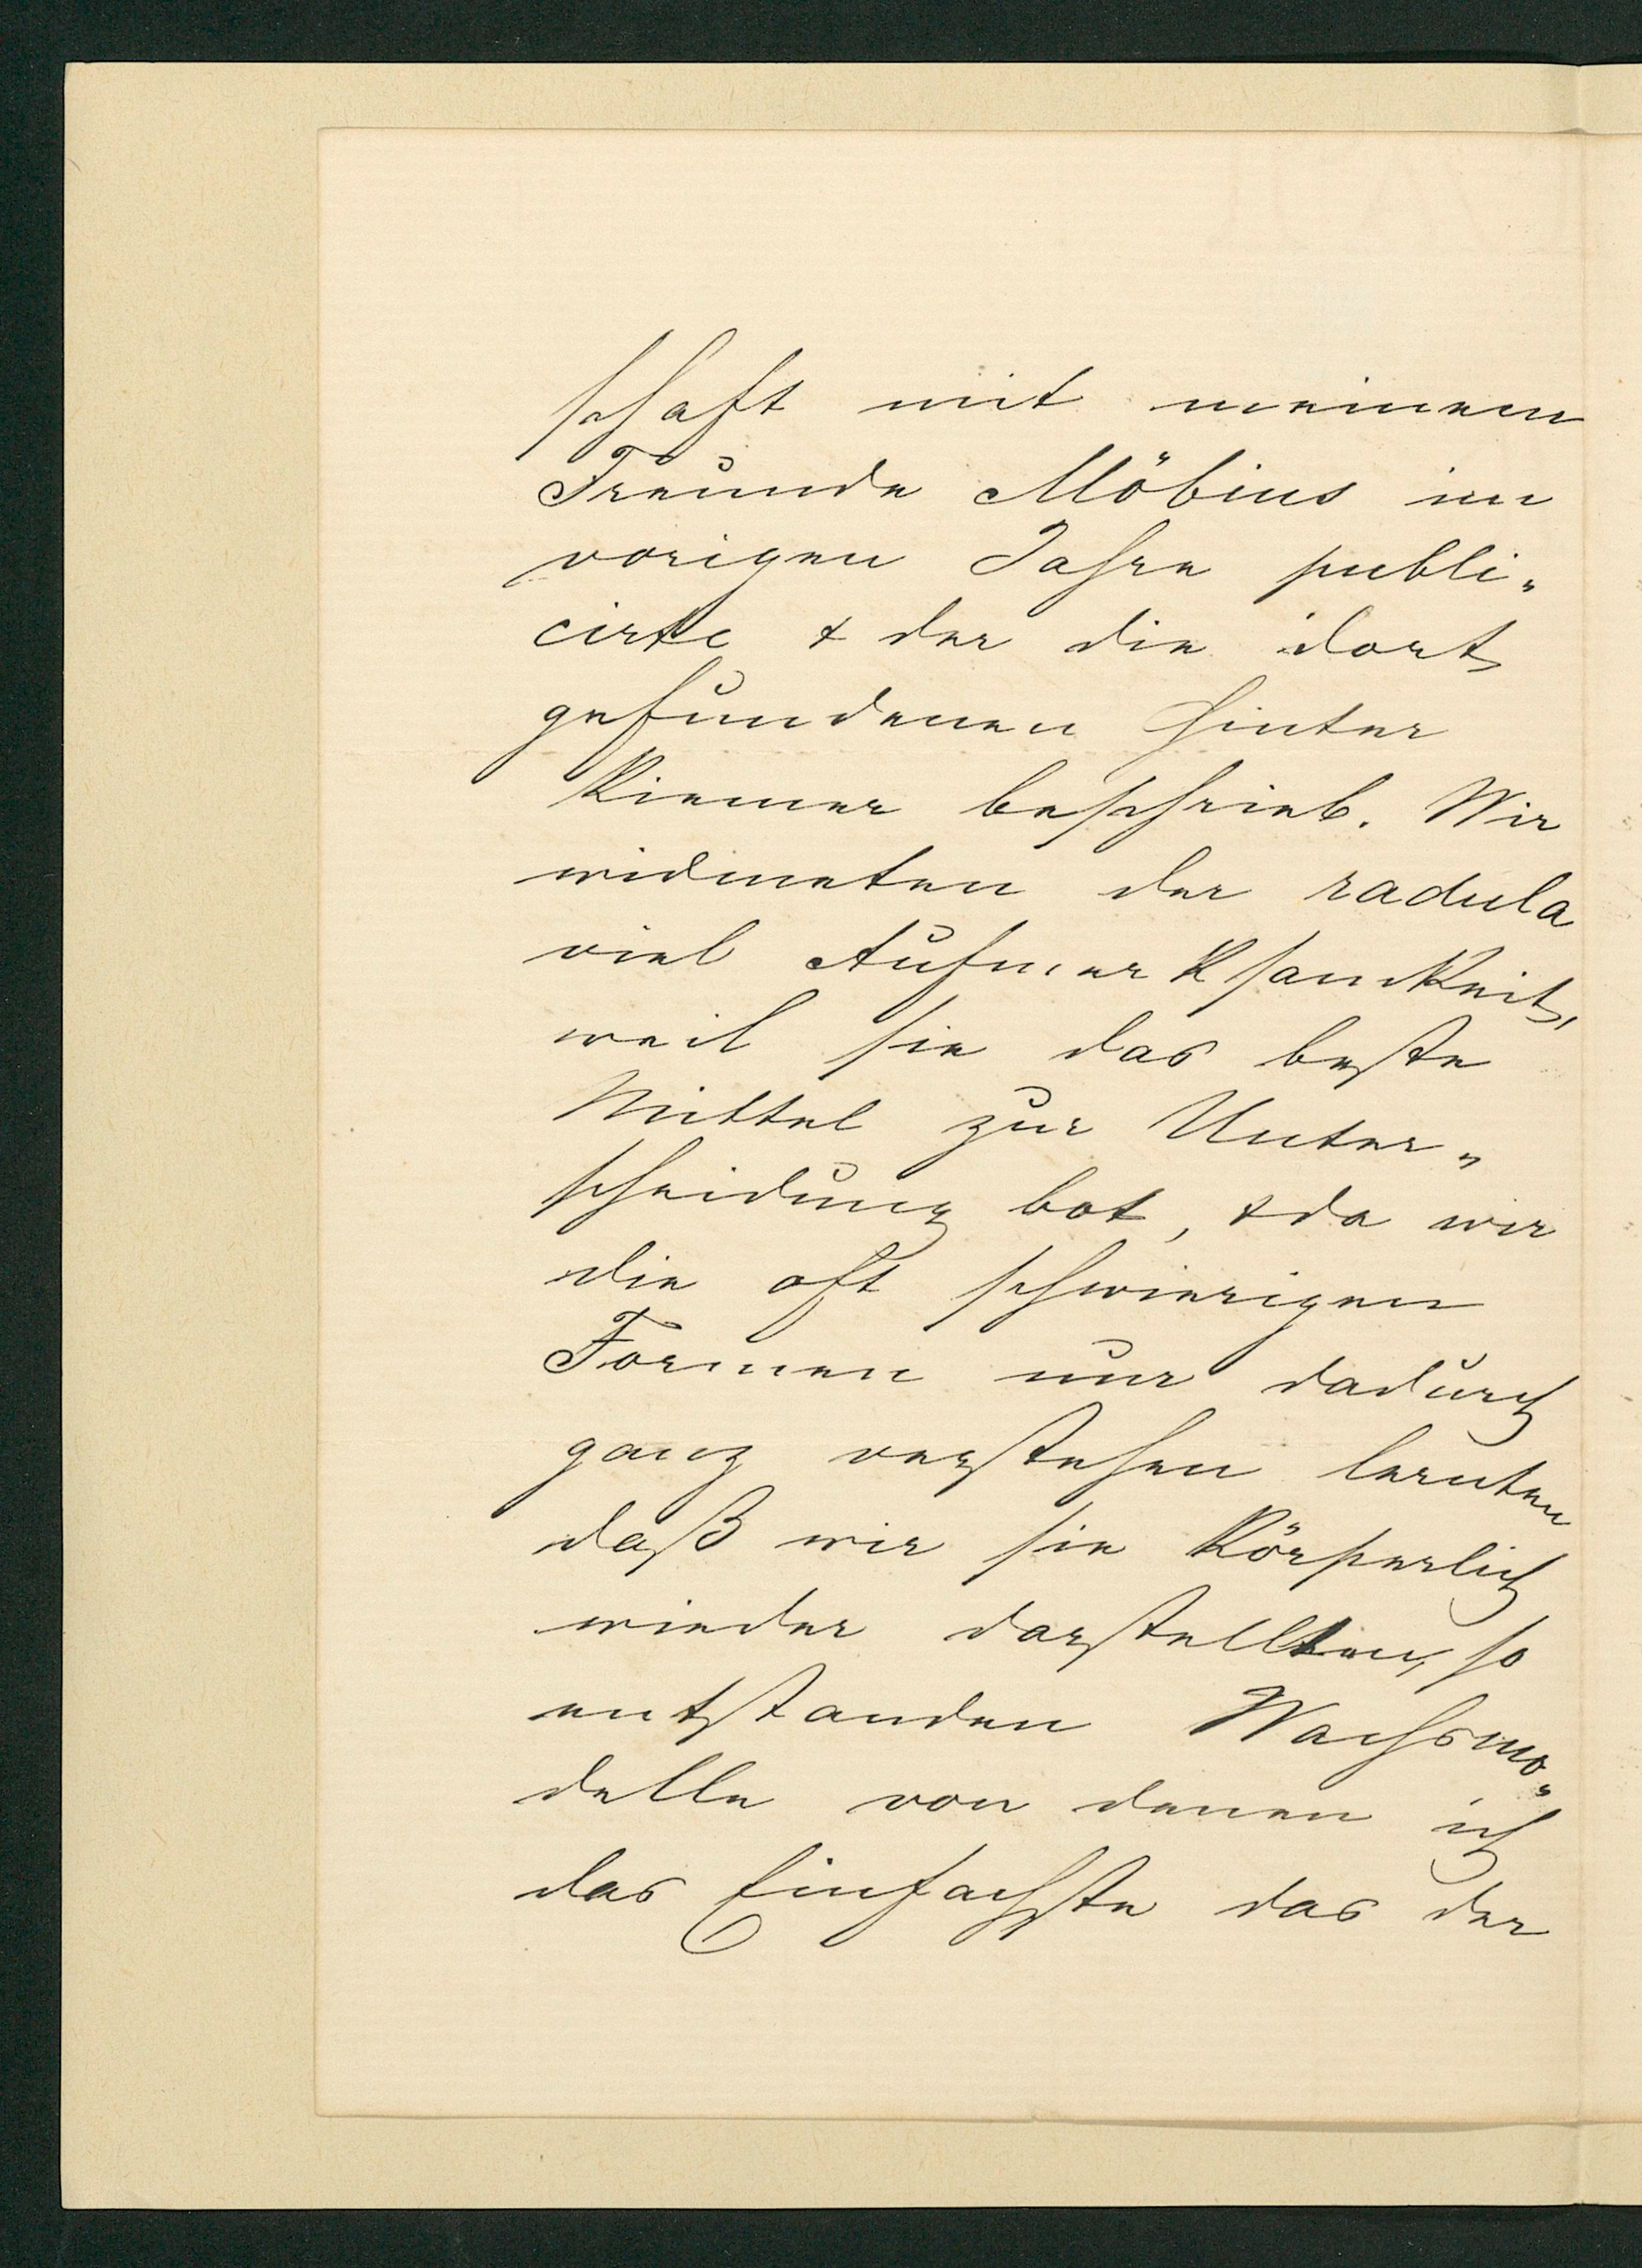 schaft mit meinem
Freunde Möbius im
vorigen Jahre publi„
cirte & der die dort
gefundenen Hinter
Kiemer beschrieb. Wir
widmeten der radula
viel Aufmerksamkeit,
weil sie das beste
Mittel zur Unter„
scheidung bot, & da wir
die oft schwierigen
Formen nur dadurch
ganz verstehen lernten
daß wir sie Körperlich
wieder darstellten, so
entstanden Wachsmo„
delle von denen ich
das Einfachste das der